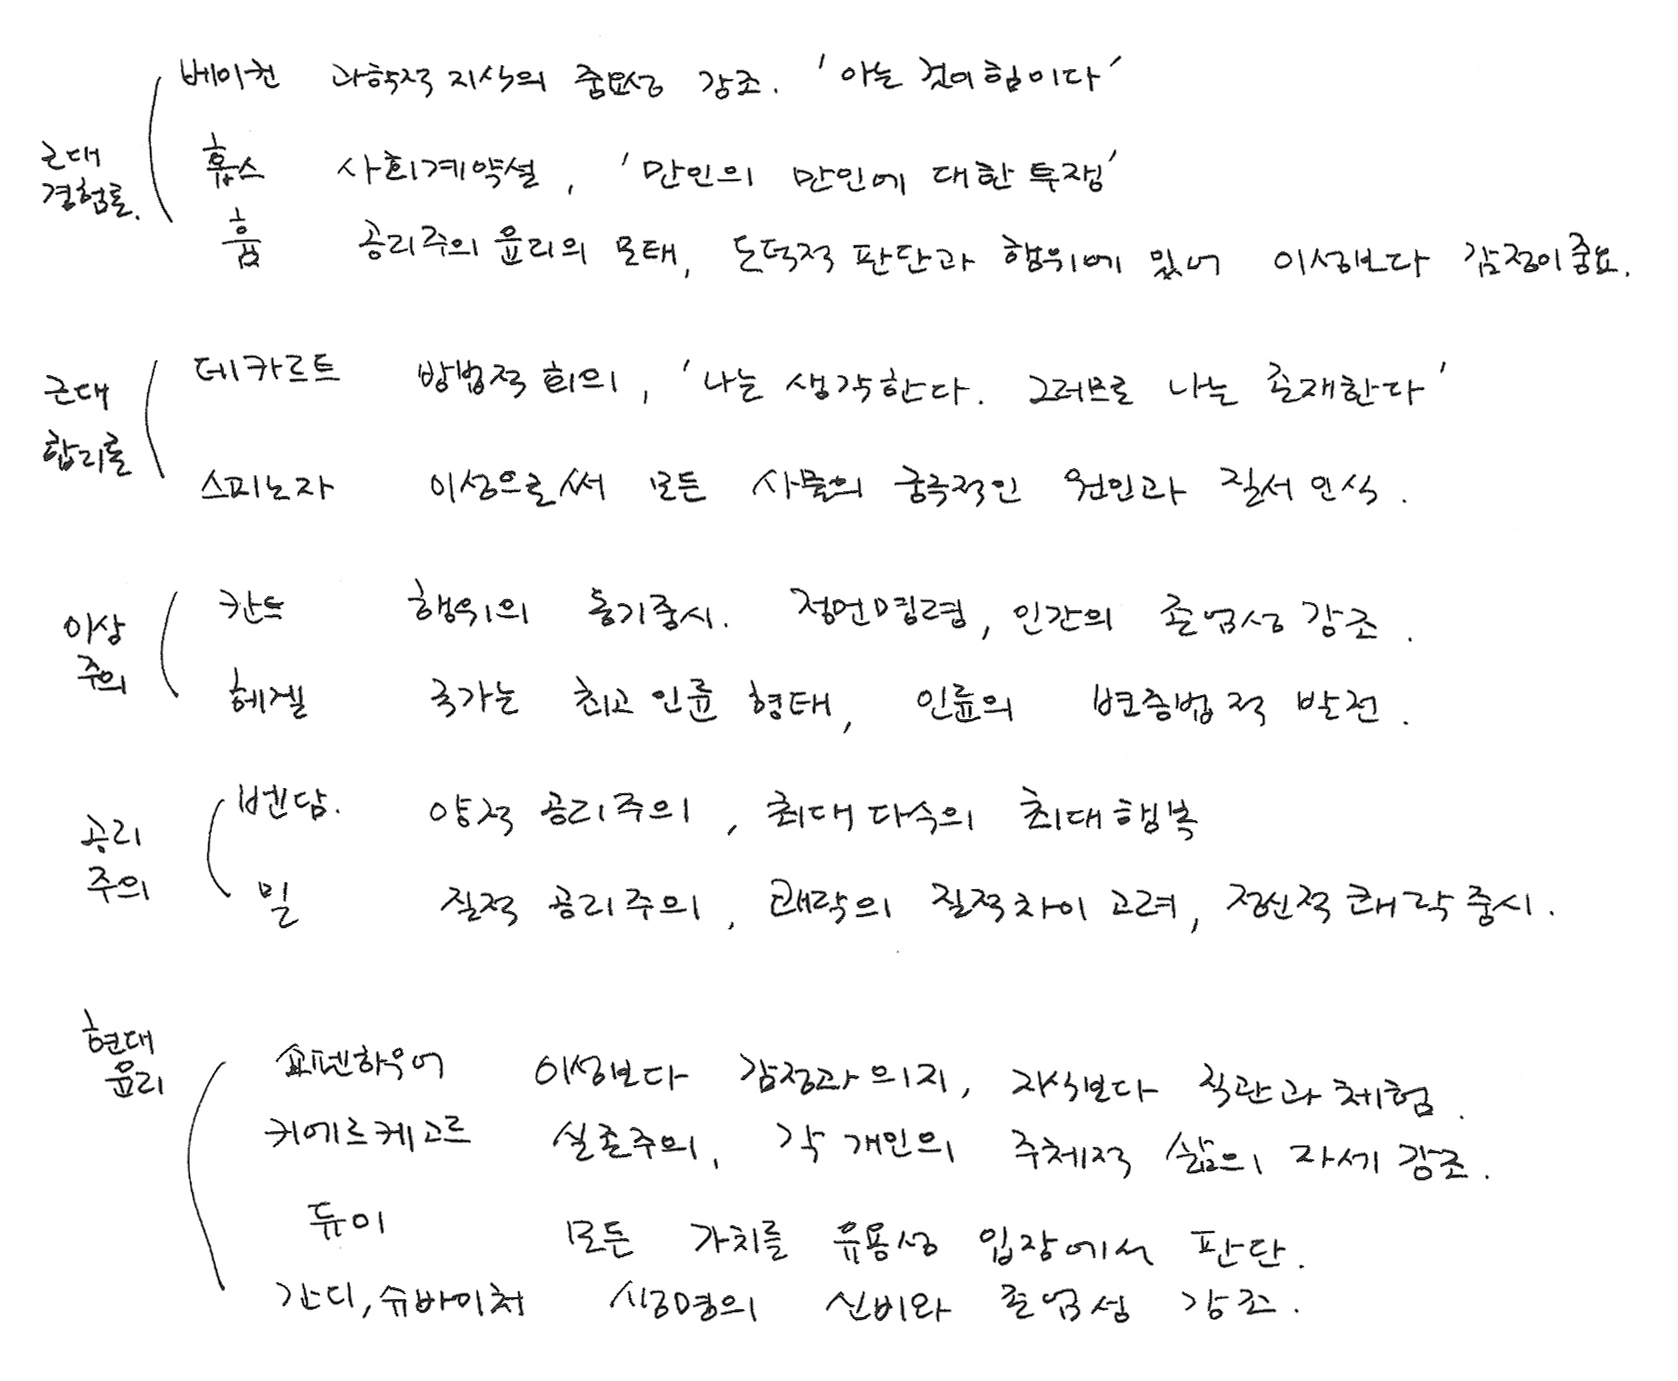 근대
경험론.
베이컨 과학적 지식의 중요성 강조. '아는 것이 힘이다'
홉스 사회계약설, '만인의 만인에 대한 투쟁'
흄 공리주의 윤리의 모태, 도덕적 판단과 행위에 있어 이성보다 감정이 중요.
근대
합리론
데카르트 방법적 회의, '나는 생각한다. 그러므로 나는 존재한다'
스피노자 이성으로써 모든 사물의 궁극적인 원인과 질서 인식.
이상
주의
칸트 행위의 동기중시. 정언명령, 인간의 존엄성 강조.
헤겔 국가는 최고 인륜 형태, 인륜의 변증법적 발전.
공리
주의
벤담. 양적 공리주의, 최대 다수의 최대 행복
밀 질적 공리주의, 쾌락의 질적차이 고려, 정신적 쾌락 중시.
현대
윤리
쇼펜하우어 이성보다 감정과 의지, 지식보다 직관과 체험.
키에르케고르 실존주의, 각 개인의 주체적 삶의 자세 강조.
듀이 모든 가치를 유용성 입장에서 판단.
간디, 슈바이처 생명의 신비와 존엄성 강조.